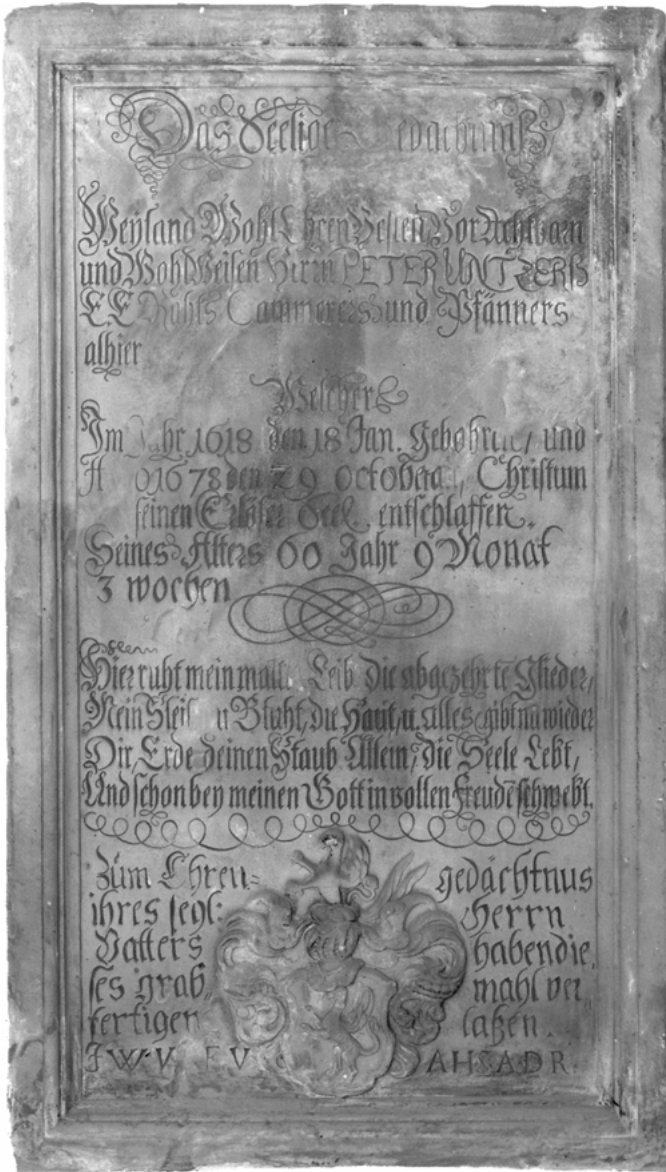 Das Seelige
Weyland Wohl Ehren Vesten Vor Achtbarn
und Wohl Weisen Herrn PETER UNTZERß
E. E. Rahts Cammerers und Pfänners
alhier
Welcher
Im Jahr 1618 den 18 Jan. gebohren, und
1678 den 29 October, Christum
seinen Erlöser Seel. entschlaffen.
Seines Alters 60 Jahr 9 Monat
3 wochen
Hier ruht mein matter Leib die abgezehrte Glieder,
Mein Bluht, die Haut, u. alles gibt wieder
Dir, Erde deinen Staub Allein, die Seele Lebt,
Und schon bey meinen Gott in vollen freudē schwebt.
Züm Ehren= gedächtnus
ihres seql: Herrn
Vatters haben die
ses grab„ mahl ver„
fertigen laßen.
I W. V. F V AHSADR.